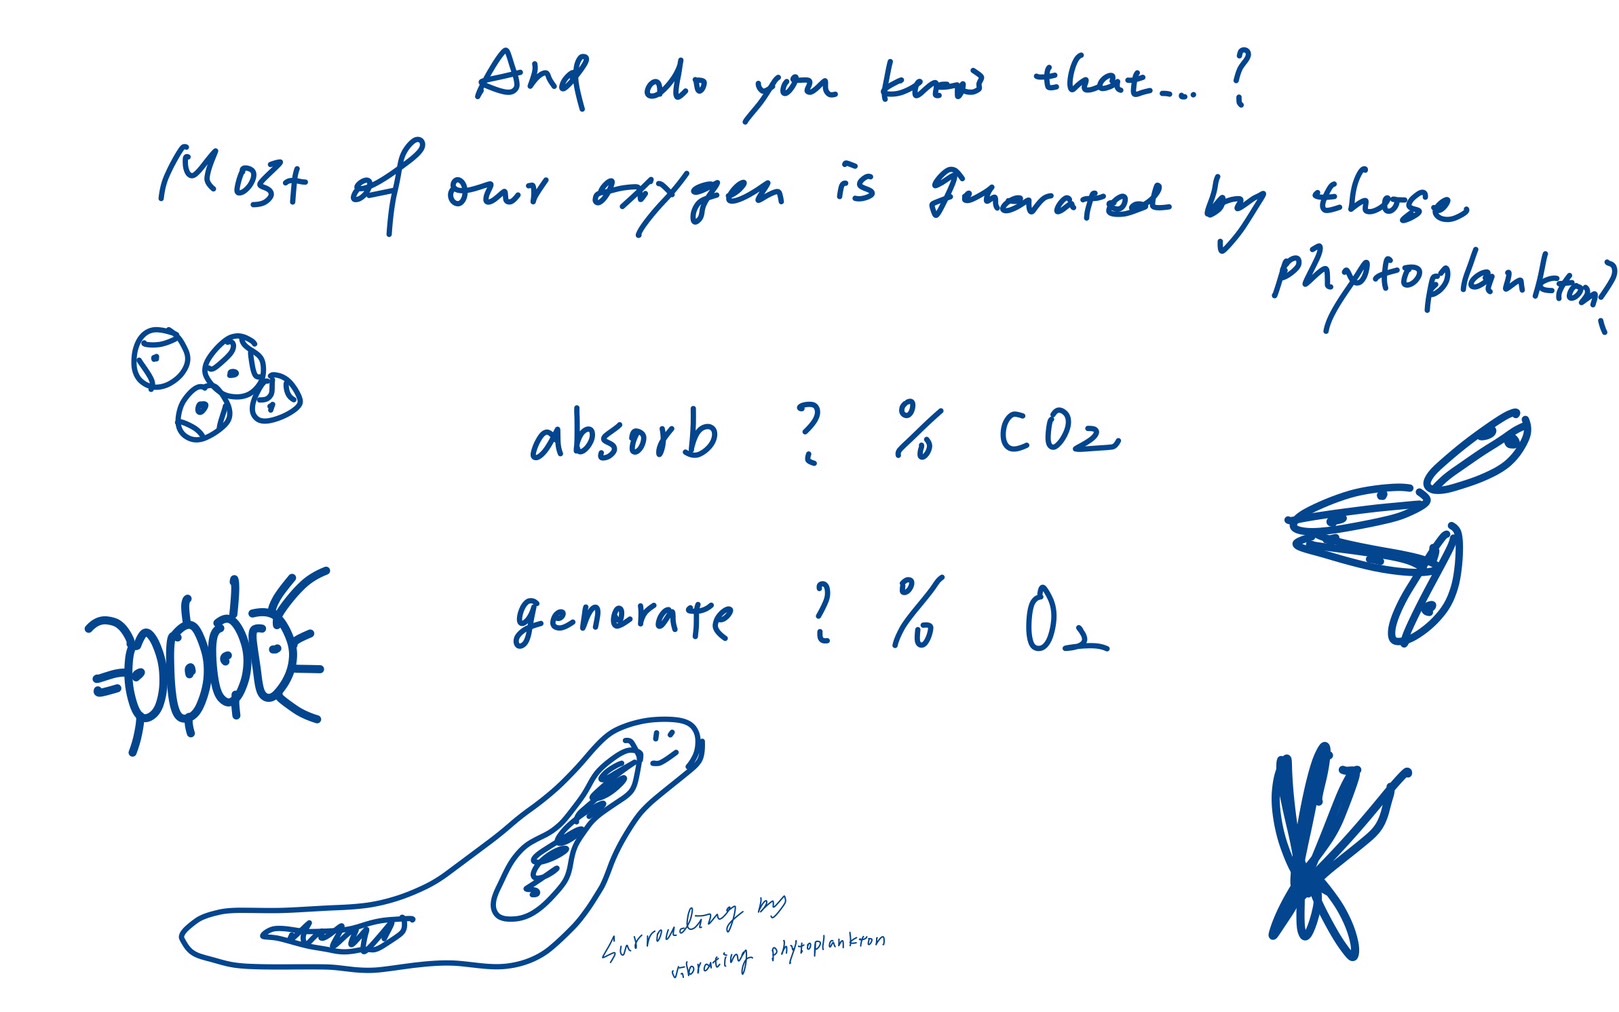 And do you know that...?
Most of our oxygen is generated by those
phytoplankton?
absorb ? % CO2
generate ? % O2
Surrouding by
vibrating phytoplankton